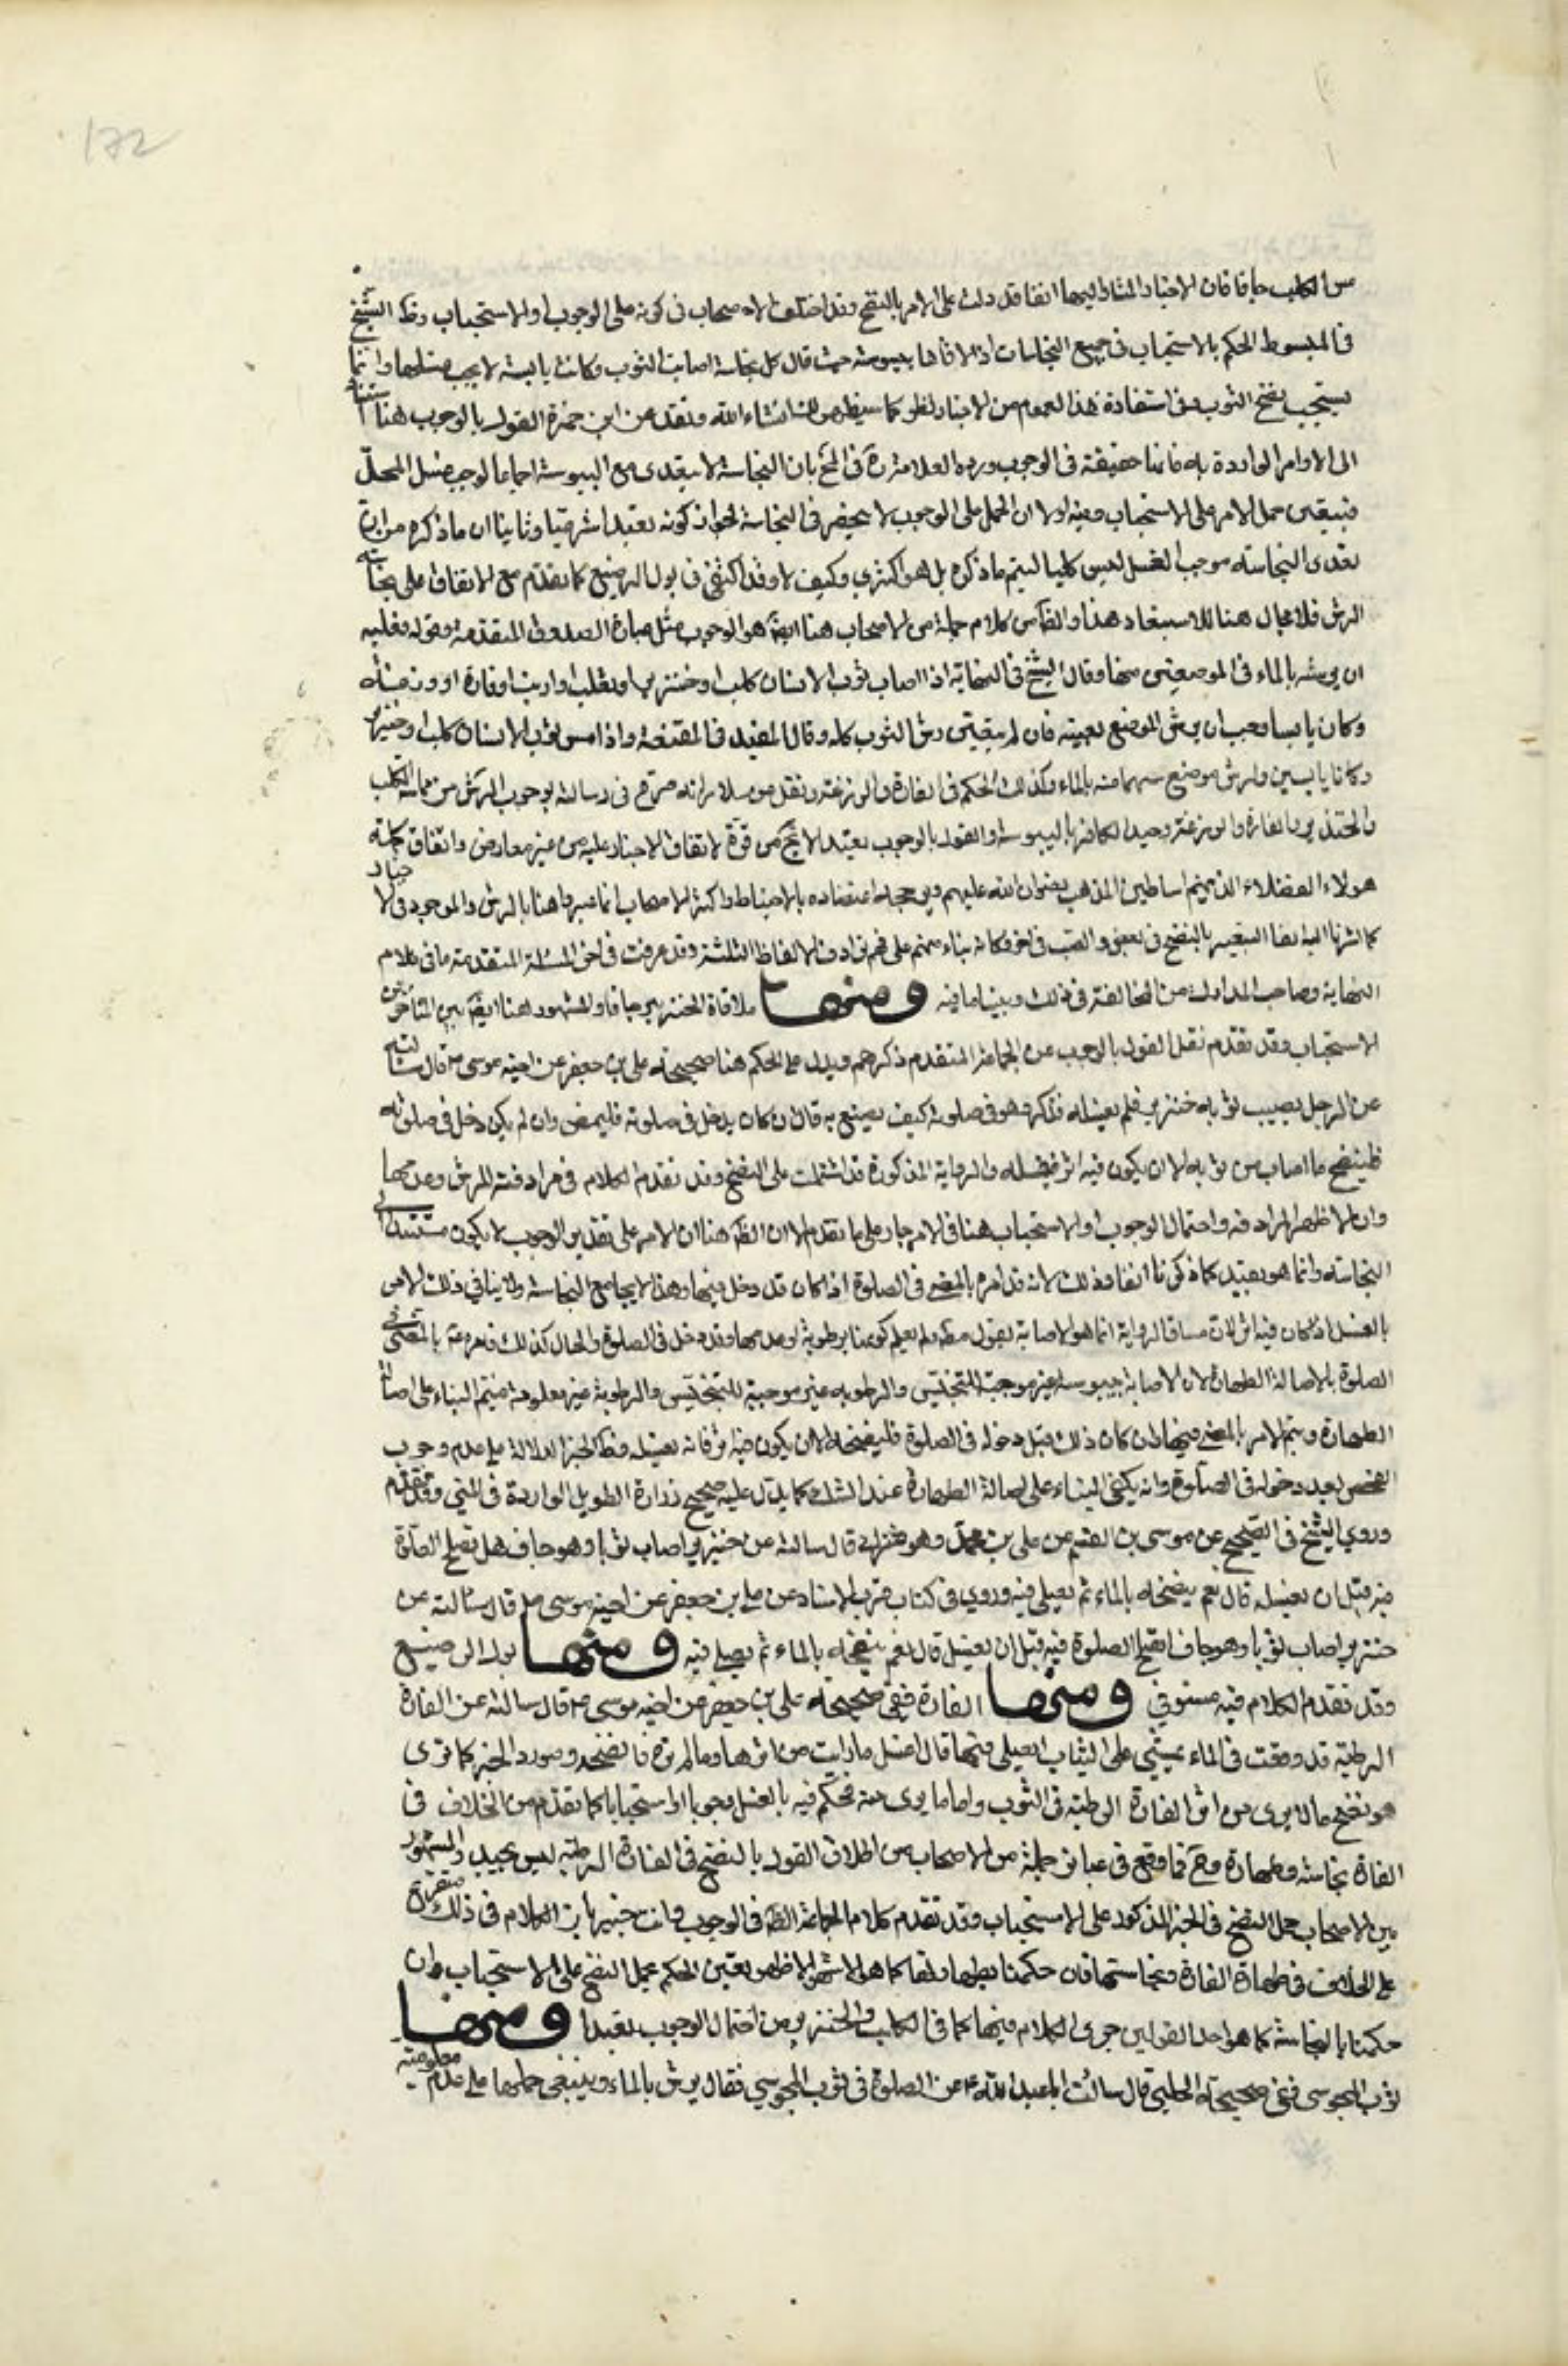 172
مس الكلب جافا فان الاخبار المشار اليها انفا قد دلت على الامر بالنضح وقد اختلف الاصحاب في كونه على الوجوب او الاستحباب وظ الشيخ
في المبسوط الحكم بالاستحباب في جميع النجاسات اذا لاقاها بيبوسة حيث قال كل نجاسة اصابت الثوب وكانت يابسة لا يجب غسلها وانما
يستحب نضح الثوب وفي استفادة هذا العموم من الاخبار نظر كما سيظهر لك انشاء الله ونقل عن ابن حمزة القول بالوجوب هنا استنادا
الى الاوامر الواردة به فانها حقيقة في الوجوب ورده العلامة ره في المخ بان النجاسة لا يتعدى مع اليبوسة اجماعا والا لوجب غسل المحل
فيتعين حمل الامر على الاستحباب وفيه اولا ان الحمل على الوجوب لا ينحصر في النجاسة لجواز كونه تعبدا شرعيا وثانيا ان ما ذكره من ان
تعدى النجاسة موجب الغسل ليس كليا ليتم ما ذكره بل هو اكثري وكيف لا وقد اكتفى في بول الرضيع كما تقدم مع الاتفاق على نجاسته
الرش فلا مجال هنا للاستبعاد هذا والظ من كلام جملة من الاصحاب هنا ايضا هو الوجوب مثل عبارة الصدوق المتقدمة وقوله فعليه
ان يرشه بالماء في الموضعين منها وقال الشيخ في النهاية اذا اصاب ثوب الانسان كلب او خنزير او ثعلب او ارنب او فارة او وزغة
وكان يابسا وجب ان يرش الموضع بعينه فان لم يتعين رش الثوب كله وقال المفيد في المقنعة واذا مس ثوب الانسان كلب او خنزير
وكانا يابسين فليرش موضع مسهما منه بالماء وكذلك الحكم في الفارة والوزغة ونقل عن سلار انه صرح في رسالته بوجوب الرش من مماسة الكلب
والخنزير والفارة والوزغة وجسد الكافر باليبوسة والقول بالوجوب تعبدا لا يخ من قوة لاتفاق الاخبار عليه من غير معارض واتفاق كلمة
هولاء الفضلاء الذين هم اساطين المذهب رضوان الله عليهم وفي محله اعتضاده بالاحتياط واكثر الاصحاب انما عبروا هنا بالرش والموجود في الاخبار
كما اشرنا اليه انفا التعبير بالنضح في بعض والصب في اخر وكانه بناء منهم على فهم ترادف الالفاظ الثلثة وقد عرفت في اخر المسئلة المتقدمة ما في كلام
النهاية وصاحب المدارك من المخالفة في ذلك وبينا ما فيه ومنها ملاقاة الخنزير جافا والمشهور هنا ايضا بين المتاخرين
الاستحباب وقد تقدم نقل القول بالوجوب عن الجماعة المتقدم ذكرهم ويدل على الحكم هنا صحيحة على بن جعفر عن اخيه موسى ع قال سالته
عن الرجل يصيب ثوبه خنزير فلم يغسله فذكر وهو في صلوته كيف يصنع به قال ان كان دخل في صلوته فليمض وان لم يكن دخل في صلوته
فلينضح ما اصاب من ثوبه الا ان يكون فيه اثر فيغسله والرواية المذكورة قد اشتملت على النضح وقد تقدم الكلام في مرادفته للرش وعدمها
وان الاظهر المرادفة واحتمال الوجوب او الاستحباب هنا في الامر جار على ما تقدم الا ان الظ هنا ان الامر على تقدير الوجوب لا يكون مستندا الى
النجاسة وانما هو تعبد كما ذكرنا انفا وذلك لانه قد امره بالمضي في الصلوة اذا كان قد دخل فيها وهذا لا يجامع النجاسة ولا ينافي ذلك الامر
بالغسل اذا كان فيه اثر لان مساق الرواية انما هو الاصابة بقول مط ولم يعلم كونها برطوبة او عدمها وقد دخل في الصلوة والحال كذلك فامره ع بالمضي في
الصلوة لاصالة الطهارة لان الاصابة بيبوسة غير موجبة للتنجيس والرطوبة غير موجبة للتنجيس والرطوبة غير معلومة فيتم البناء على اصالة
الطهارة ويتم الامر بالمضي فيها وان كان ذلك قبل دخوله في الصلوة فلينضحه الا ان يكون فيه اثر فانه يغسله وظ الخبر الدلالة على عدم وجوب
الفحص بعد دخوله في الصلوة وانه يكفي البناء على اصالة الطهارة عند الشك كما يدل عليه صحيح زرارة الطويل الواردة في المني وقد تقدم
وروى الشيخ في الصحيح عن موسى بن القسم عن على بن محمد وهو مشترك قال سالته عن خنزير اصاب ثوبا وهو جاف هل تصلح الصلوة
فيه قبل ان يغسله قال نعم ينضحه بالماء ثم يصلى فيه وروى في كتاب قرب الاسناد عن على بن جعفر عن اخيه موسى ع قال سالته عن
خنزير اصاب ثوبا وهو جاف اتصلح الصلوة فيه قبل ان يغسل قال نعم ينضحه بالماء ثم يصلى فيه ومنها بول الرضيع
وقد تقدم الكلام فيه مستوفى ومنها الفارة ففي صحيحة على بن جعفر عن اخيه موسى ع قال سالته عن الفارة
الرطبة قد وقعت في الماء تمشي على الثياب ايصلى فيها قال اغسل ما رايت من اثرها وما لم تره فانضحه ومورد الخبر كما ترى
هو نضح ما لا يرى من اثر الفارة الرطبة في الثوب واما ما يرى منه فحكم فيه بالغسل وجوبا او استحبابا كما تقدم من الخلاف في
الفارة نجاسة وطهارة وح فما وقع في عبائر جملة من الاصحاب من اطلاق القول بالنضح في الفارة الرطبة ليس بجيد والمشهور
بين الاصحاب حمل النضح في الخبر المذكور على الاستحباب وقد تقدم كلام الجماعة الظ في الوجوب وانت خبير بان الكلام في ذلك متفرع
على الخلاف في طهارة الفارة ونجاستها فان حكمنا بطهارتها كما هو الاشهر الاظهر تعين الحكم بحمل النضح على الاستحباب وان
حكمنا بالنجاسة كما هو احد القولين جرى الكلام فيها كما في الكلب والخنزير من احتمال الوجوب تعبدا ومنها
ثوب المجوسي ففي صحيحة الحلبي قال سالت ابا عبد الله ع عن الصلوة في ثوب المجوسي فقال يرش بالماء وينبغي حملها على عدم معلومية